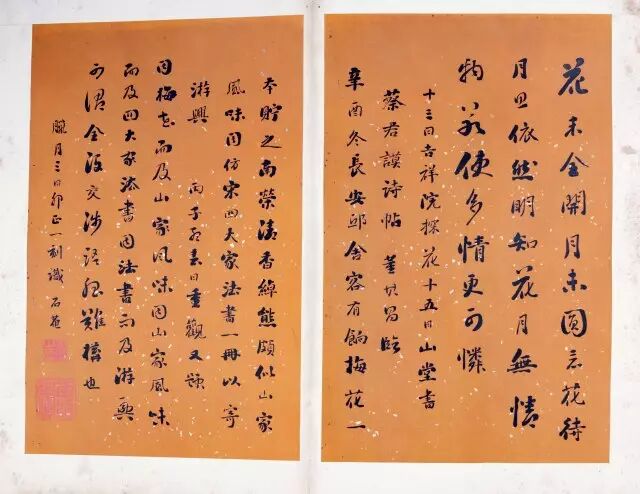 花未全開月未圓尋花待
月思依然明知花月無情
物若使多情更可憐
十三日吉祥院探花十五日山堂書
蔡君謨詩帖 董其昌臨
辛酉冬長安邸舍客有餉梅花一
本貯之南榮清香綽態頗似山家
風味因仿宋四大家法書一冊以寄
游興 丙子 春日重觀又題
因梅花而及山家風味因山家風味
而及四大家法書因法書而及游興
可謂全沒交涉 也
臘月三日卯正一刻識 石菴